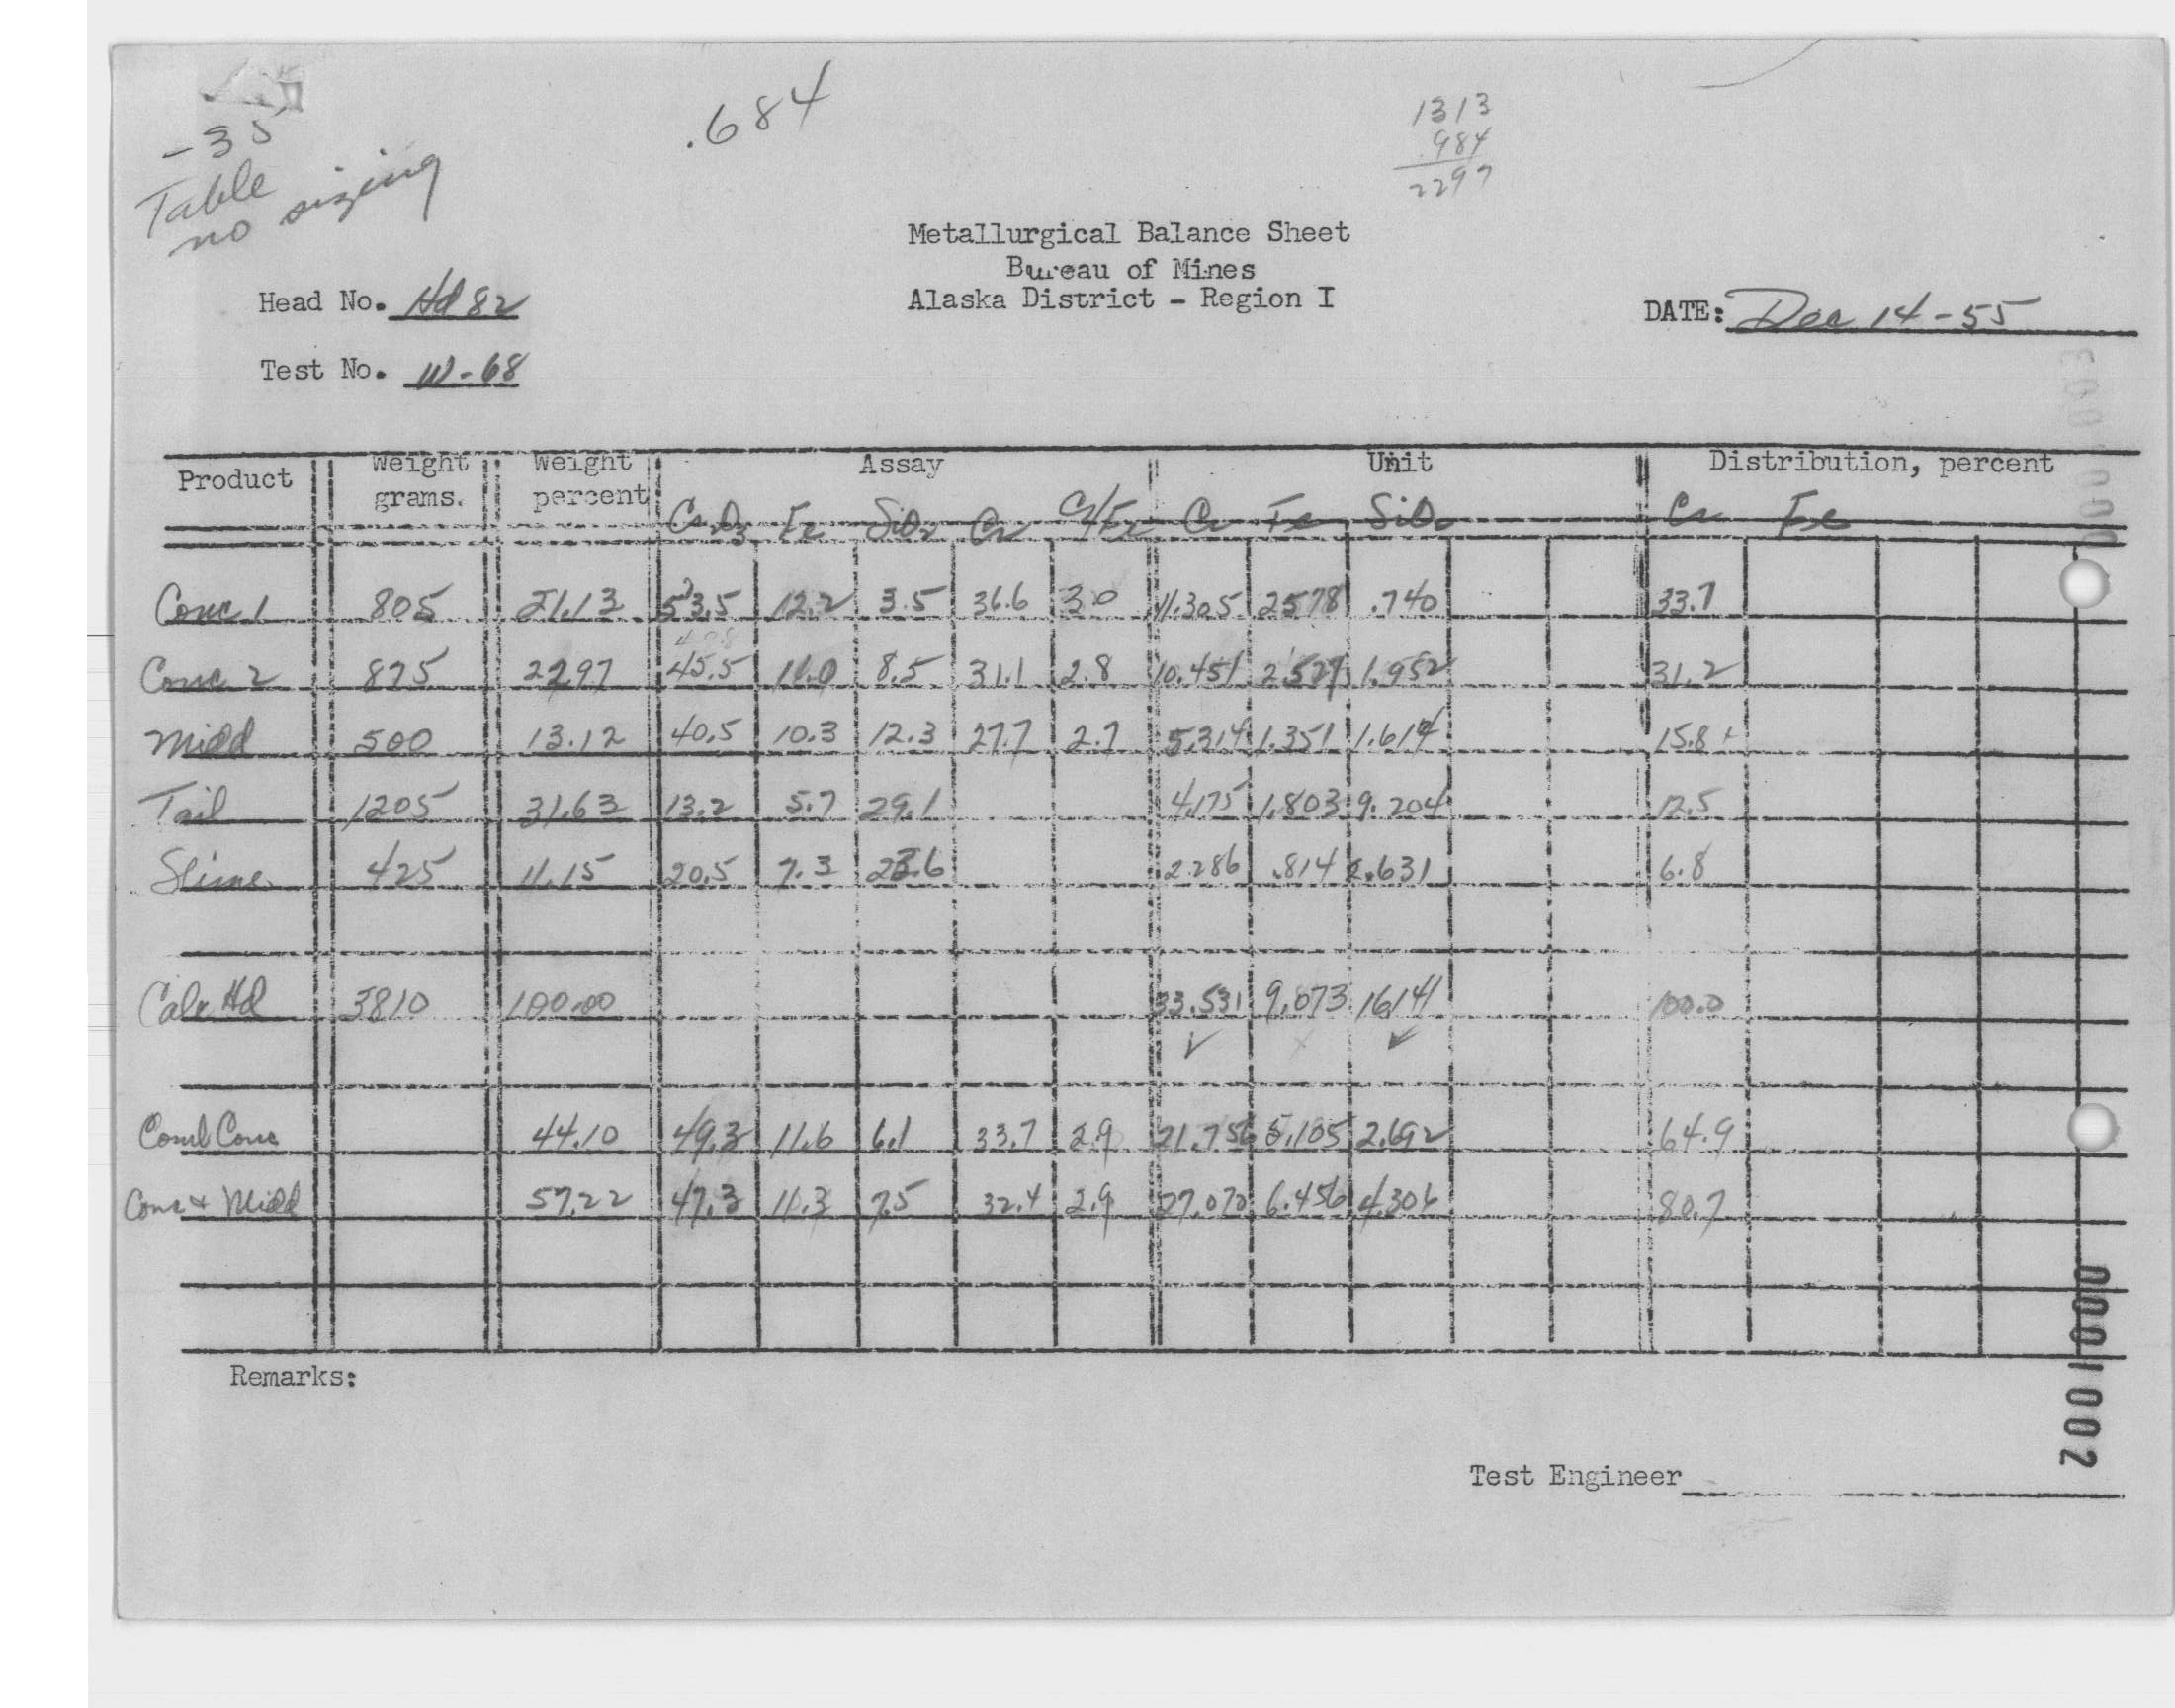 -35
Table
no sizing
.684
1313
.984
2297
Metallurgical Balance Sheet
Bureau of Mines
Alaska District - Region I
Head No. Hd 82
DATE: Dec 14-55
Test No. W-68
Product Weight grams. Weight percent Assay Unit Distribution, percent
Cr2O3 Fe SiO2 Cr Cr/Fe Cr Fe SiO2 Cr Fe
Conc 1 805 21.13 53.5 12.2 3.5 36.6 3.0 11.305 2578 .740 33.7
Conc 2 875 22.97 45.5 11.0 8.5 31.1 2.8 10.451 2.527 1.952 31.2
Midd 500 13.12 40.5 10.3 12.3 27.7 2.7 5.314 1.351 1.614 15.8
Tail 1205 31.63 13.2 5.7 29.1 4.175 1.803 9.204 12.5
Slime 425 11.15 20.5 7.3 23.6 2.286 .814 2.631 6.8
Calc Hd 3810 100.00 33.531 9.073 16.141 100.0
Comb Conc 44.10 49.3 11.6 6.1 33.7 2.9 21.756 5.105 2.692 64.9
Conc + Midd 57.22 47.3 11.3 7.5 32.4 2.9 27.070 6.456 4.306 80.7
Remarks:
Test Engineer
0001002